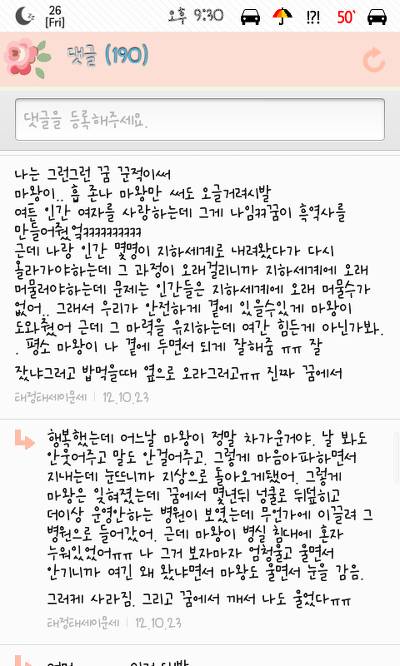 26
[Fri]
오후 9:30
⁉
50°
댓글 (190)
댓글을 등록해주세요.
나는 그런그런 꿈 꾼적이써
마왕이.. 흡 존나 마왕만 써도 오글거려시발
여튼 인간 여자를 사랑하는데 그게 나임ㅋㅋ꿈이 흑역사를
만들어줬엌ㅋㅋㅋㅋㅋㅋㅋㅋㅋㅋ
근데 나랑 인간 몇명이 지하세계로 내려왔다가 다시
올라가야하는데 그 과정이 오래걸리니까 지하세계에 오래
머물러야하는데 문제는 인간들은 지하세계에 오래 머물수가
없어.. 그래서 우리가 안전하게 곁에 있을수있게 마왕이
도와줬어 근데 그 마력을 유지하는데 여간 힘든게 아닌가봐.
. 평소 마왕이 나 곁에 두면서 되게 잘해줌 ㅠㅠ 잘
잤냐그러고 밥먹을때 옆으로 오라그러고ㅠㅠ 진짜 꿈에서
태정태세이문세 | 12.10.23
행복했는데 어느날 마왕이 정말 차가운거야. 날 봐도
안웃어주고 말도 안걸어주고. 그렇게 마음아파하면서
지내는데 눈뜨니까 지상으로 돌아오게됐어. 그렇게
마왕은 잊혀졌는데 꿈에서 몇년뒤 넝쿨로 뒤덮히고
더이상 운영안하는 병원이 보였는데 무언가에 이끌려 그
병원으로 들어갔어. 근데 마왕이 병실 침대에 혼자
누워있었어ㅠㅠ 나 그거 보자마자 엄청울고 울면서
안기니까 여긴 왜 왔냐면서 마왕도 울면서 눈을 감음.
그러케 사라짐. 그리고 꿈에서 깨서 나도 울었다ㅠㅠ
태정태세이문세 | 12.10.23